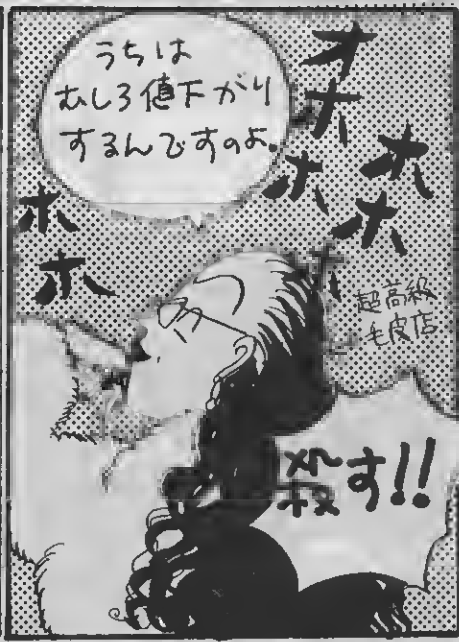 うちは
むしろ値下がり
するんですのよ。
オホホ
ホホホ
ホホ
超高級
毛皮店
殺す!!